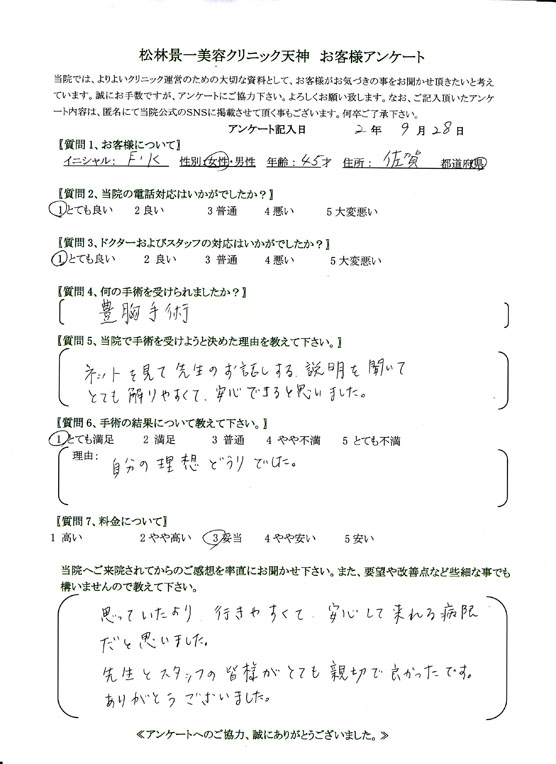 松林景一美容クリニック天神　お客様アンケート
当院では、よりよいクリニック運営のための大切な資料として、お客様がお気づきの事をお聞かせ頂きたいと考え
ています。誠にお手数ですが、アンケートにご協力下さい。よろしくお願い致します。なお、ご記入頂いたアンケ
ート内容は、匿名にて当院公式のSNSに掲載させて頂く事もございます。何卒ご了承下さい。
アンケート記入日　2 年 9 月 28 日
〖質問1、お客様について〗
イニシャル： F・K　性別：女性・男性　年齢：45才　住所： 佐賀　都道府県
〖質問2、当院の電話対応はいかがでしたか？〗
1とても良い　2 良い　3 普通　4 悪い　5 大変悪い
〖質問3、ドクターおよびスタッフの対応はいかがでしたか？〗
1とても良い　2 良い　3 普通　4 悪い　5 大変悪い
〖質問4、何の手術を受けられましたか？〗
豊胸手術
〖質問5、当院で手術を受けようと決めた理由を教えて下さい。〗
ネットを見て先生のお話しする、説明を聞いて
とても解りやすくて、安心できると思いました。
〖質問6、手術の結果について教えて下さい。〗
1とても満足　2 満足　3 普通　4 やや不満　5 とても不満
理由： 自分の理想どうりでした。
〖質問7、料金について〗
1 高い　2 やや高い　3妥当　4 やや安い　5 安い
当院へご来院されてからのご感想を率直にお聞かせ下さい。また、要望や改善点など些細な事でも
構いませんので教えて下さい。
思っていたより、行きやすくて、安心して来れる病院
だと思いました。
先生とスタッフの皆様がとても親切で良かったです。
ありがとうございました。
≪アンケートへのご協力、誠にありがとうございました。≫